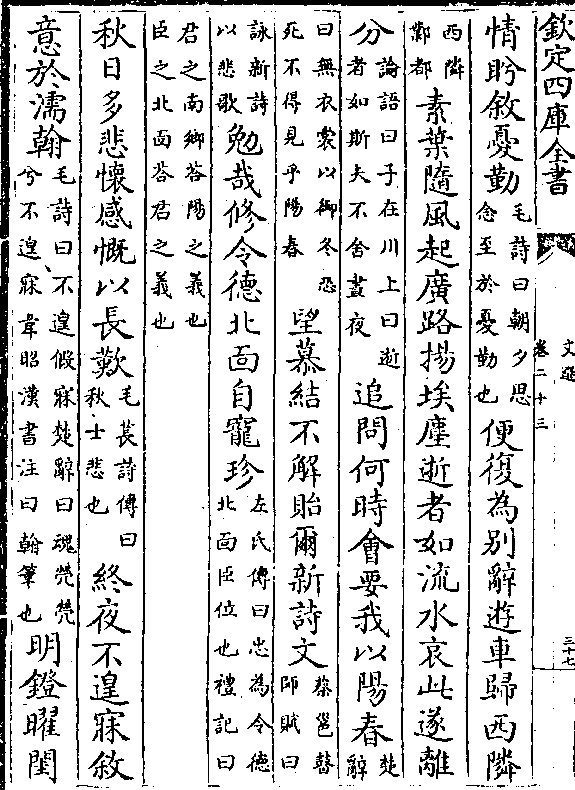 欽定四庫全書
文選
卷二十三
三十七
情眄敘憂勤毛詩曰朝夕思念至於憂勤也便復為別辭遊車歸西隣
西隣鄴都素葉隨風起廣路揚埃塵逝者如流水哀此遂離
分論語曰子在川上曰逝者如斯夫不舍晝夜追問何時會要我以陽春楚辭
曰無衣裳以御冬恐死不得見乎陽春望慕結不解貽爾新詩文蔡邕瞽師賦曰
詠新詩以悲歌勉哉修令德北面自寵珍左氏傳曰忠為令德北面臣位也禮記曰
君之南鄉荅陽之義也臣之北面荅君之義也
秋日多悲懷感慨以長歎毛萇詩傳曰秋士悲也終夜不遑寐敘
意於濡翰毛詩曰不遑假寐楚辭曰魂煢煢兮不遑寐韋昭漢書注曰翰筆也明鐙曜閨